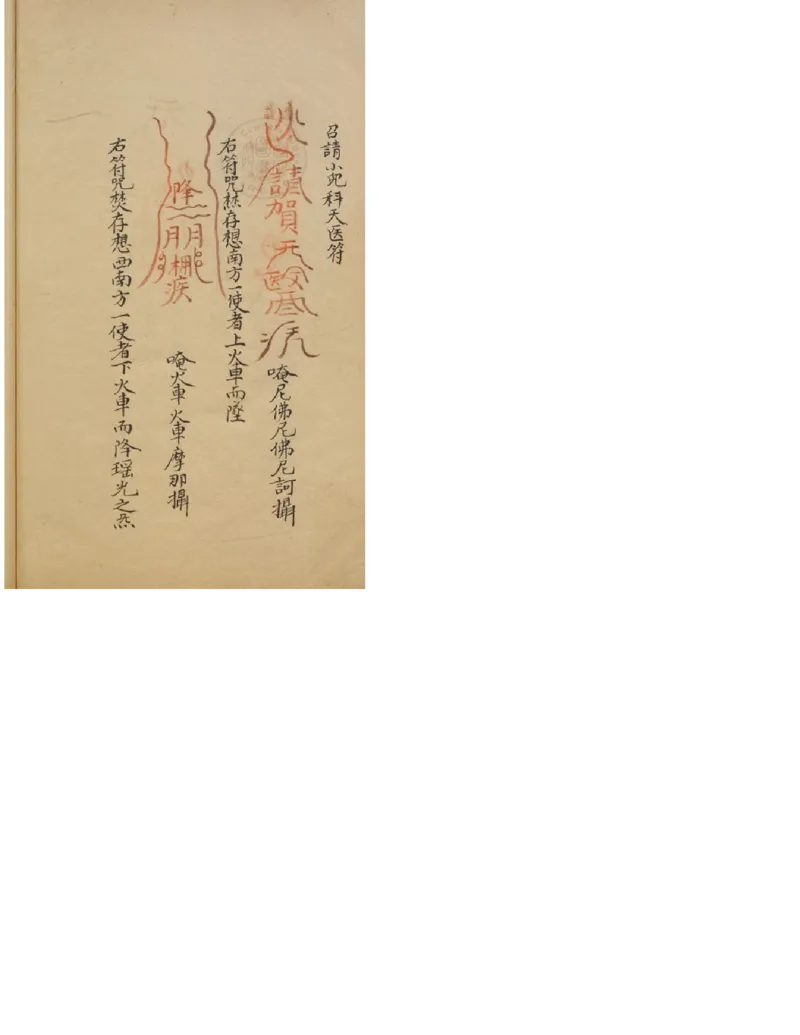 召請小兒科天医符
請賀天醫
唵尼佛尼佛尼訶攝
右符咒焚存想南方一使者上火車而墜
降
疾
唵火車火車摩那攝
右符咒焚存想西南方一使者下火車而降瑶光之炁